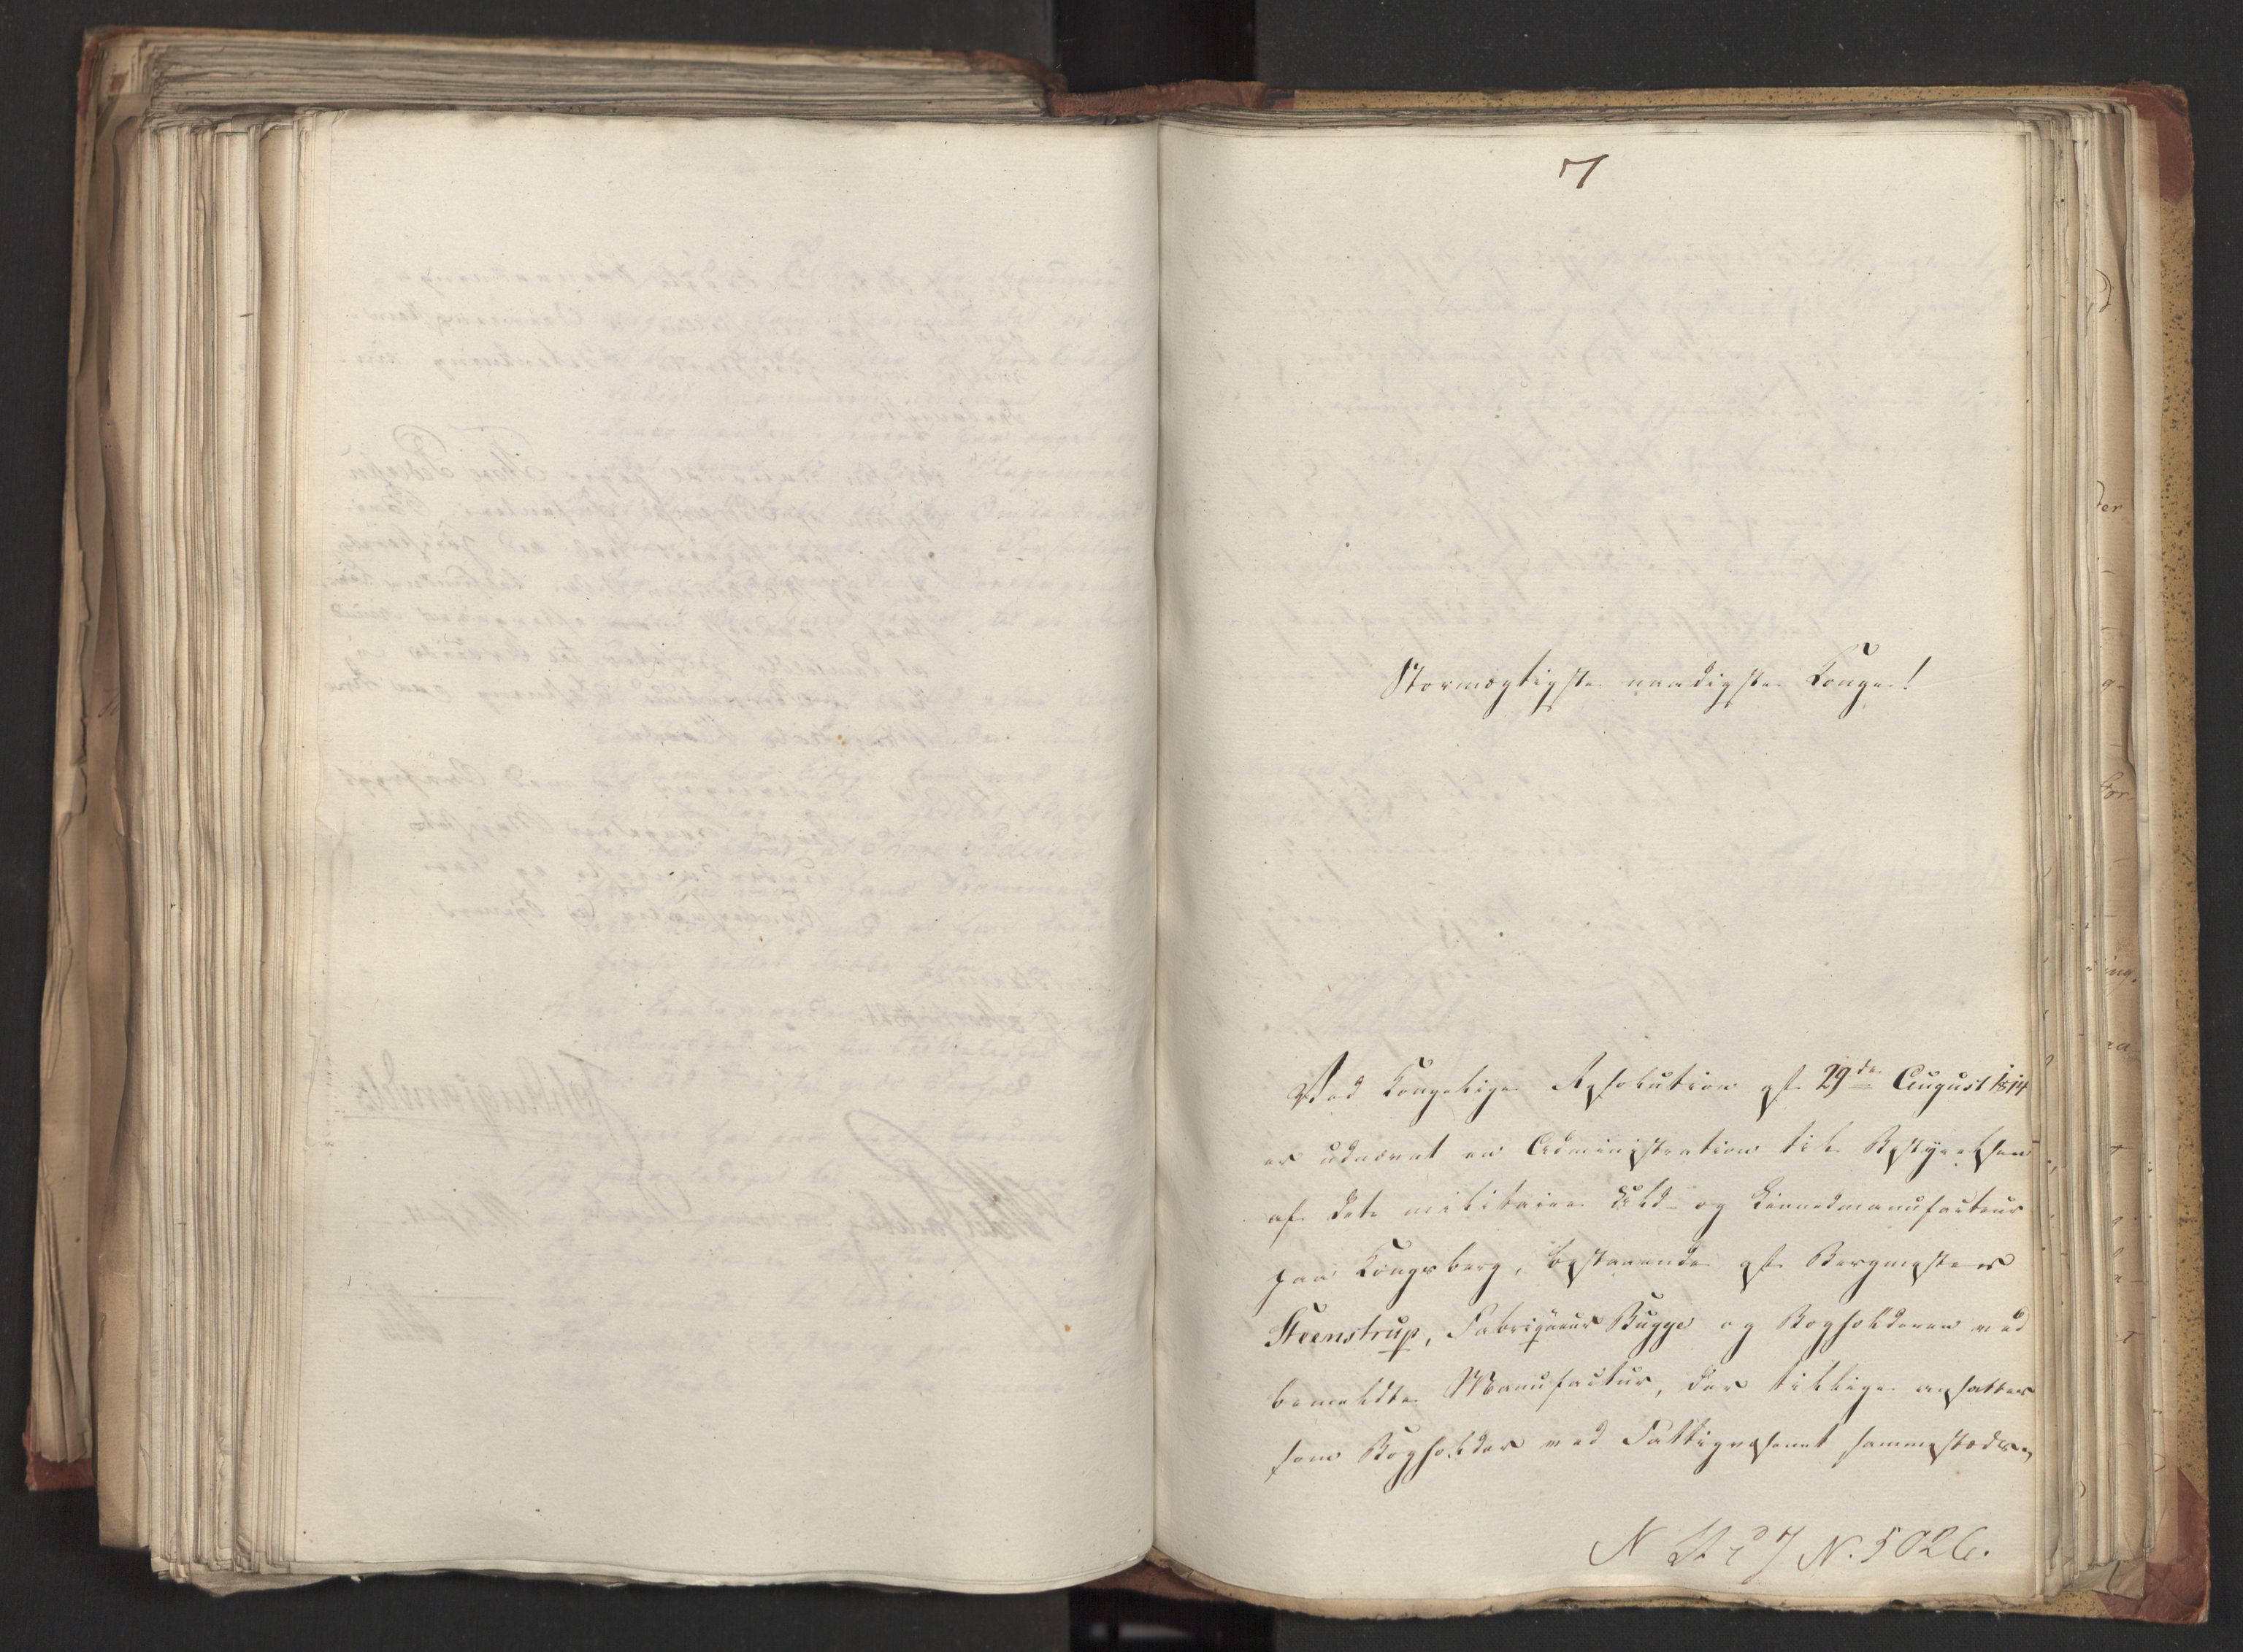 7
Stormægtigste naadigste Konge!
Ved Kongelige Resolution af 29de August 1814
er udnævnt en Administration til Bestyrelsen
af det militaire Uld- og Linnedmanufacteur
paa Kongsberg, bestaaende af Bergmester
Steenstrup, Fabriqueur Bugge og Bogholderen ved
bemeldte Manufactur, der tillige ansattes
som Bogholder ved Fattigvæsenet sammestæds,